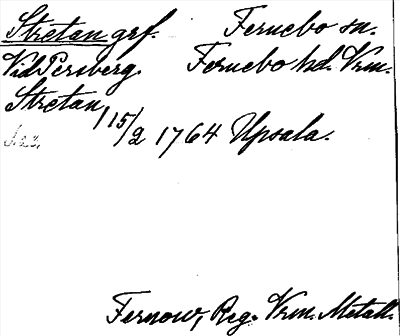 Stretan grf. Fernebo sn.
Vid Persberg. Fernebo hd. Vrm.
Stretan
/15/2 1764 Upsala.
Fernow, Reg. Vrm. Metall.